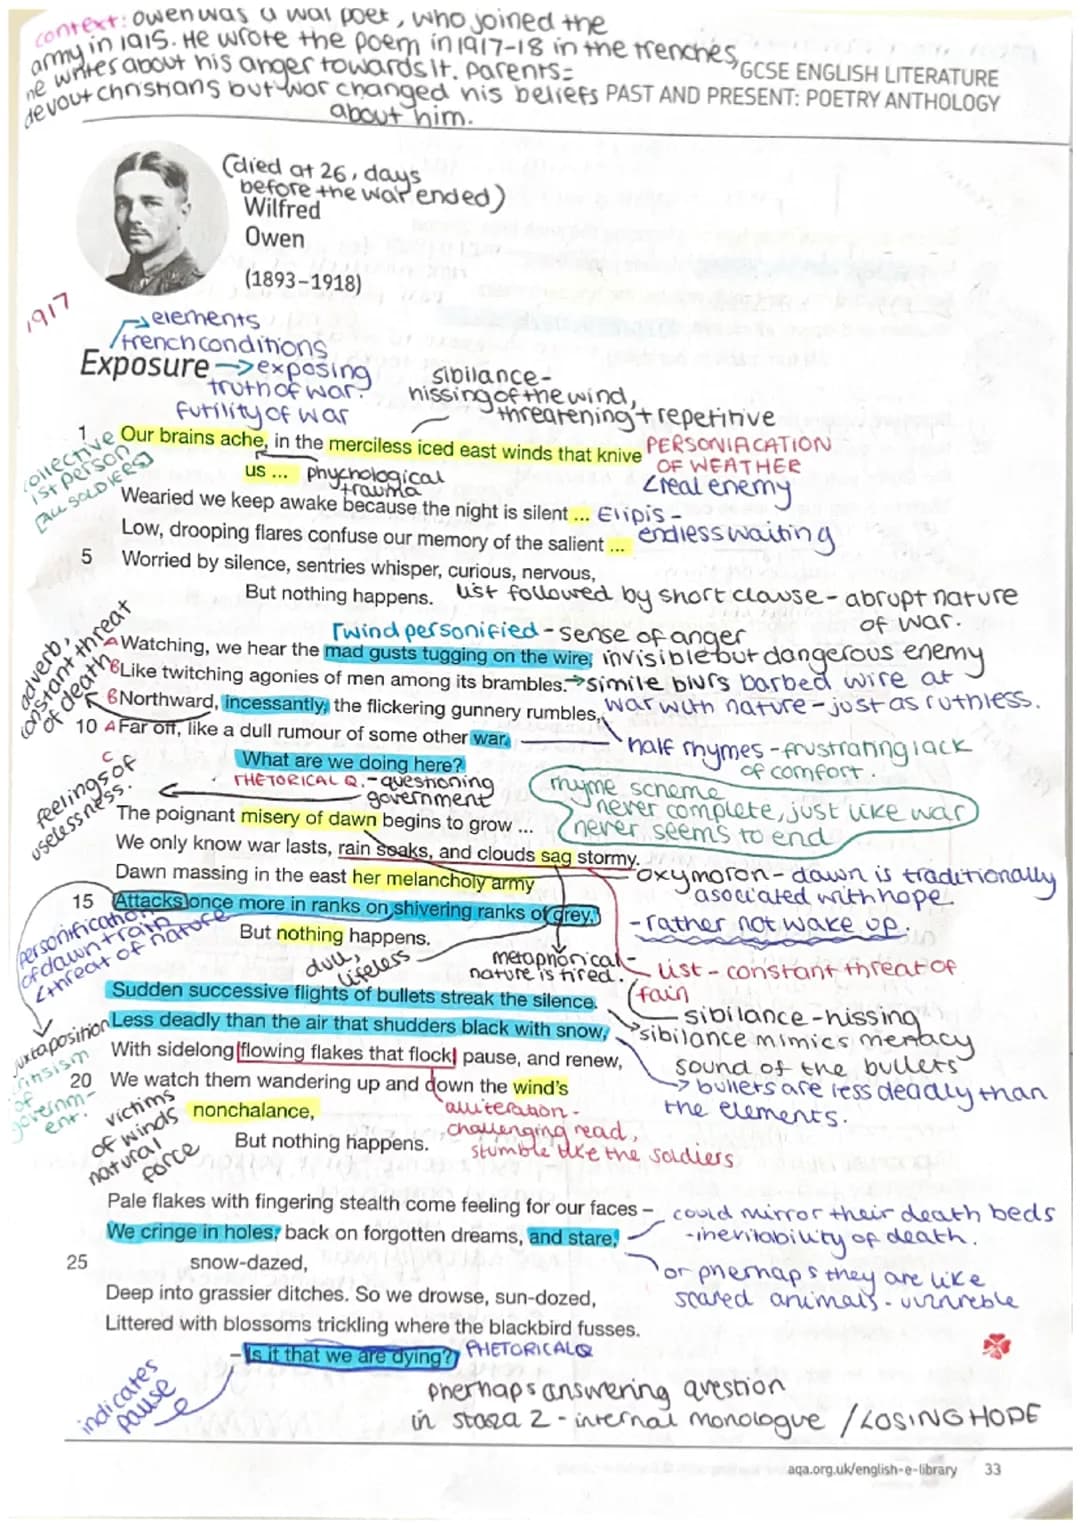 context: Owen was a war poet, who joined the
army in 1915. He wrote the poem in 1917-18 in the trenches,
he writes about his anger towards it. Parents=
devout christians but war changed his beliefs
about him.
GCSE ENGLISH LITERATURE
PAST AND PRESENT: POETRY ANTHOLOGY
(died at 26, days
before the war ended)
Wilfred
Owen
(1893–1918)
1917
elements
trench conditions
Exposure → exposing
truth of war.
futility of war
sibilance-
hissing of the wind,
threatening + repetitive
collective
1st person
[ALL SOLDIERS]
1 Our brains ache, in the merciless iced east winds that knive
us ...
PERSONIFICATION
OF WEATHER
<real enemy
phychological
trauma
Wearied we keep awake because the night is silent ...
Elipis -
endless waiting
Low, drooping flares confuse our memory of the salient ...
5 Worried by silence, sentries whisper, curious, nervous,
But nothing happens.
list followed by short clause - abrupt nature
of war.
adverb,
constant threat
of death
wind personified - sense of anger
invisible but dangerous enemy
A Watching, we hear the mad gusts tugging on the wire,
B Like twitching agonies of men among its brambles.
→ simile blurs barbed wire at
war with nature - just as ruthless.
B Northward, incessantly, the flickering gunnery rumbles,
10 A Far off, like a dull rumour of some other war.
half rhymes - frustrating lack
of comfort.
C What are we doing here?
RHETORICAL Q. - questioning
government
feelings of
uselessness.
rhyme scheme
never complete, just like war
never seems to end
The poignant misery of dawn begins to grow ...
We only know war lasts, rain soaks, and clouds sag stormy.
Dawn massing in the east her melancholy army
oxymoron - dawn is traditionally
asociated with hope.
- rather not wake up.
15 Attacks once more in ranks on shivering ranks of grey,
But nothing happens.
personification
of dawn + rain
<threat of nature
dull,
lifeless
metaphorical -
nature is tired.
list - constant threat of
rain
Sudden successive flights of bullets streak the silence.
sibilance - hissing
sibilance mimics menacy
sound of the bullets
Less deadly than the air that shudders black with snow,
→ bullets are less deadly than
the elements.
With sidelong flowing flakes that flock, pause, and renew,
20 We watch them wandering up and down the wind's
nonchalance,
But nothing happens.
alliteration -
challenging read,
stumble like the soldiers
juxtaposition
of
governm-
ent.
victims
of winds
natural
force
Pale flakes with fingering stealth come feeling for our faces –
We cringe in holes, back on forgotten dreams, and stare,
25 snow-dazed,
could mirror their death beds
- inevitability of death.
or pherhaps they are like
scared animals -
Deep into grassier ditches. So we drowse, sun-dozed,
Littered with blossoms trickling where the blackbird fusses.
– Is it that we are dying?
RHETORICAL Q
indicates
pause
pherhaps answering question
in staza 2 - internal monologue / LOSING HOPE
aqa.org.uk/english-e-library 33